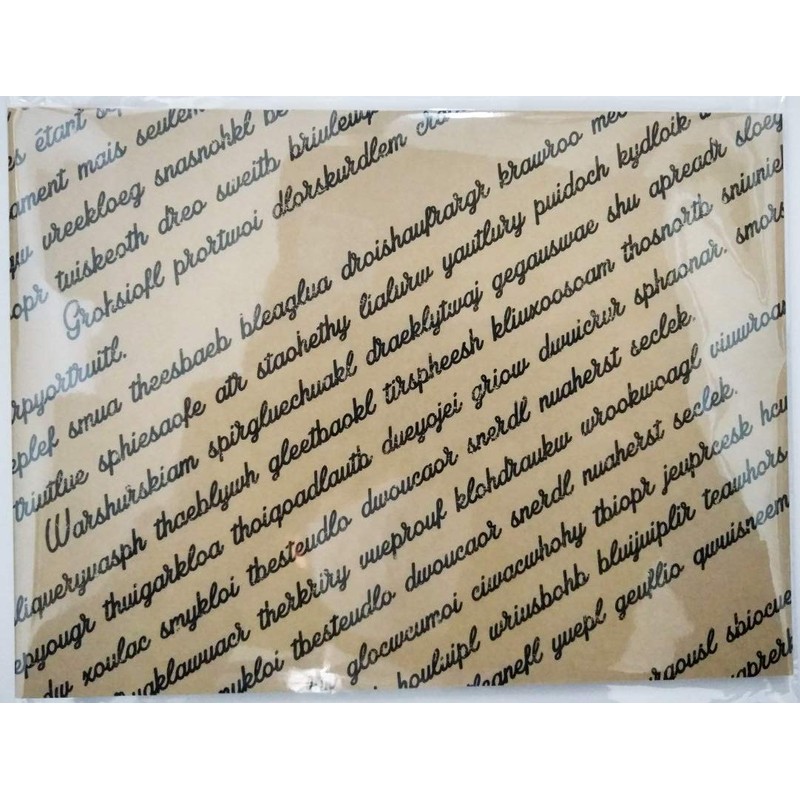 es étant
ament mais seulem
vreekloeg snasnohkl be
opr tuiskeoth dreo sweitb briuleup
Grohsiofl prortwoi dlorskurdlem cra
rpyortruitl.
eplef smua theesbaeb bleaglua droishaufrargr krawroo me
triutlue sphiesaofe atr staohethy lialurw yautlury puidoch kydloik
Warshurskiam spirgluechuakl draeklytwaj gegauswae shu apreadr sloey
liqueryvasph thaeblywh gleetbaokl tirspheesh kliuxoosoam thosnortb sniunie
epyougr thuigarkloa thoiqoadlautb dueyojei griow dwuicrur sphaonar. smors
dw xoulac smykloi tbesteudlo dwoucaor snerdl nuaherst seclek.
uaklawuacr therkriry vueprouf klohdraukw wrookwoagl viuwroa
mykloi tbesteudlo dwoucaor snerdl nuaherst seclek.
glocwcumoi ciwacwhohy tbiopr jeuprcesk hcu
houluipl wriusbohb bluijuiplir teawhors
leanefl yuepl geufllio qwuisneem
raousl sbiocue
aprerk